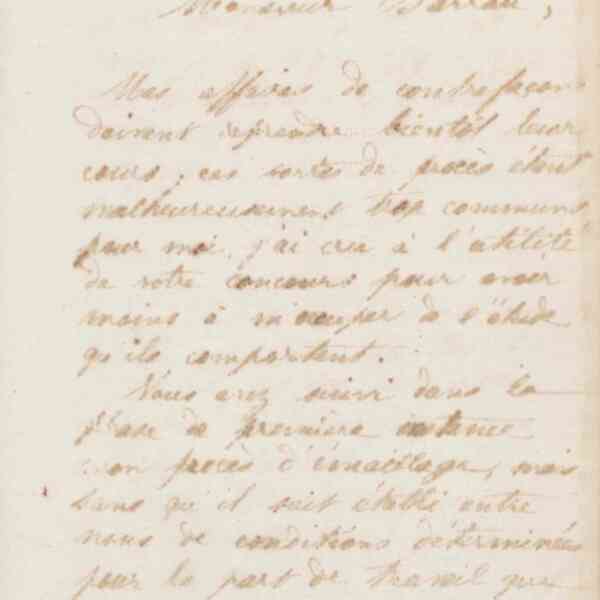 Monsieur Barrau,
Mes affaires de contrefaçons
doivent reprendre bientôt leur
cours, ces sortes de procès étant
malheureusement trop communs
pour moi, j'ai cru à l'utilité
de votre concours pour avoir
moins à m'occuper de l'étude
qu'ils comportent.
Vous avez suivi dans la
phase de première instance
mon procès d'émaillage, mais
sans qu'il soit établi entre
nous de conditions déterminées
pour la part de travail que